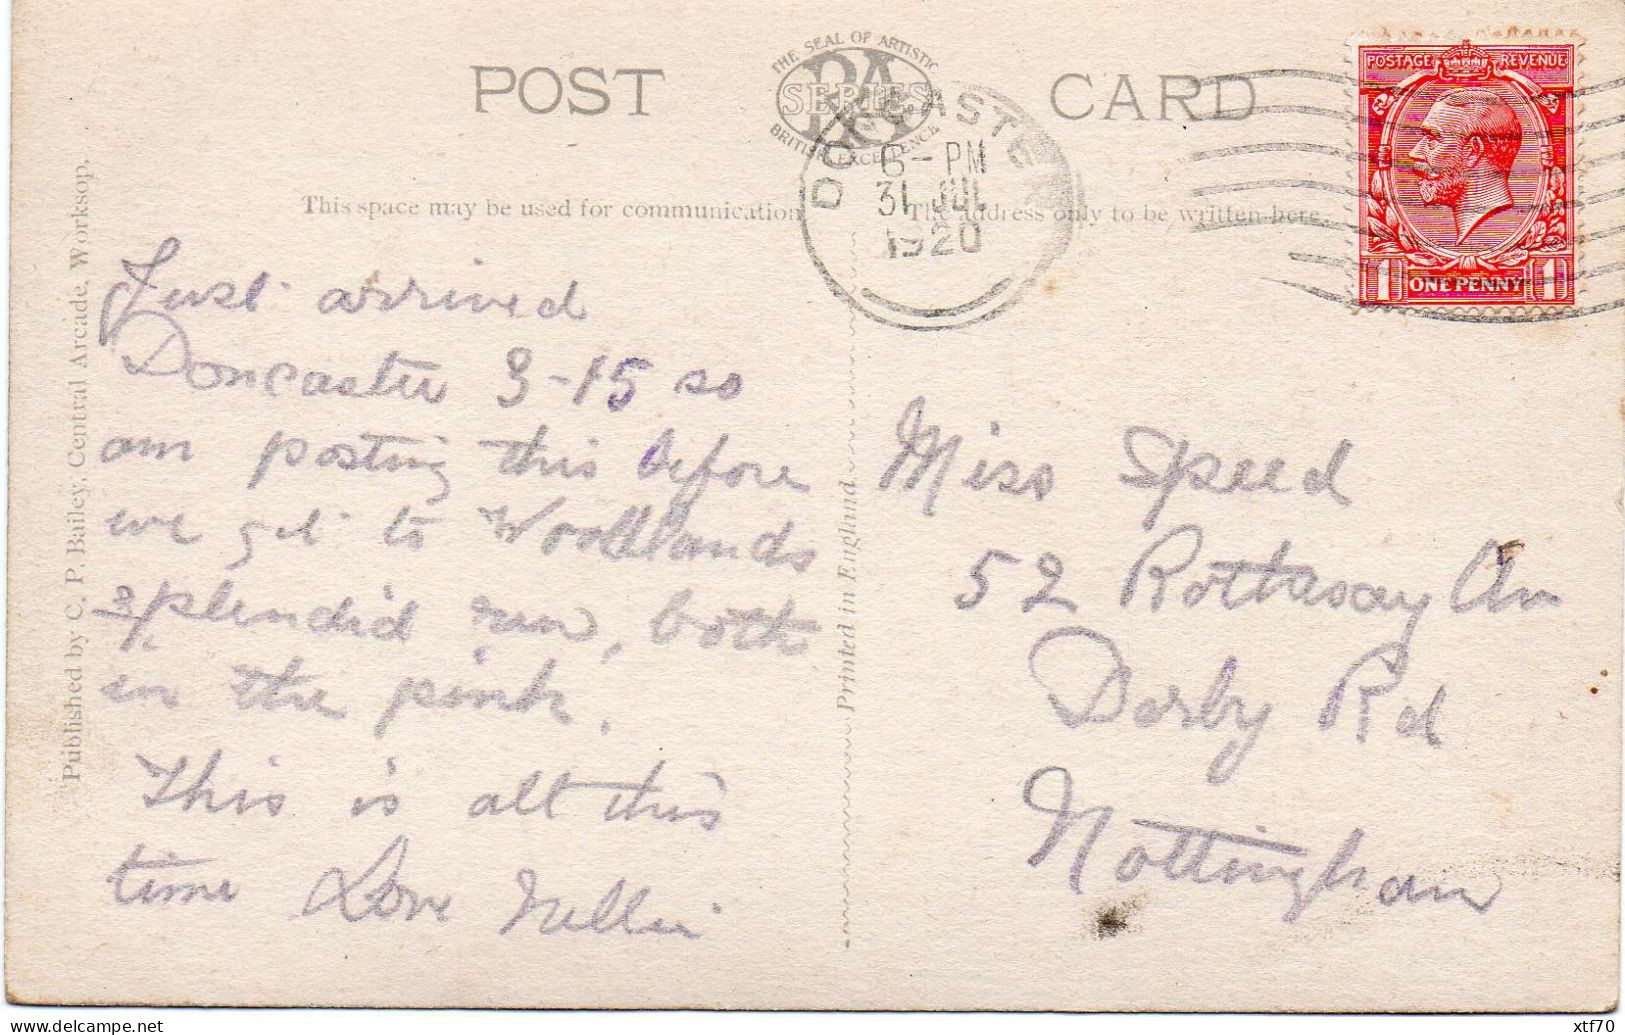 POST CARD
THE SEAL OF ARTISTIC
RA
SERIES
BRITISH EXCELLENCE
DONCASTER
6 - PM
31 JUL
1920
POSTAGE REVENUE
1 ONE PENNY 1
This space may be used for communication
The address only to be written here.
Published by C. P. Bailey, Central Arcade, Worksop.
Printed in England
Just arrived
Doncaster 3-15 so
am posting this before
we get to Woodlands
splendid run, both
in the pink.
This is all this
time Love Nellie
Miss Speed
52 Rottasay Av
Derby Rd
Nottingham
delcampe.net
xtf70